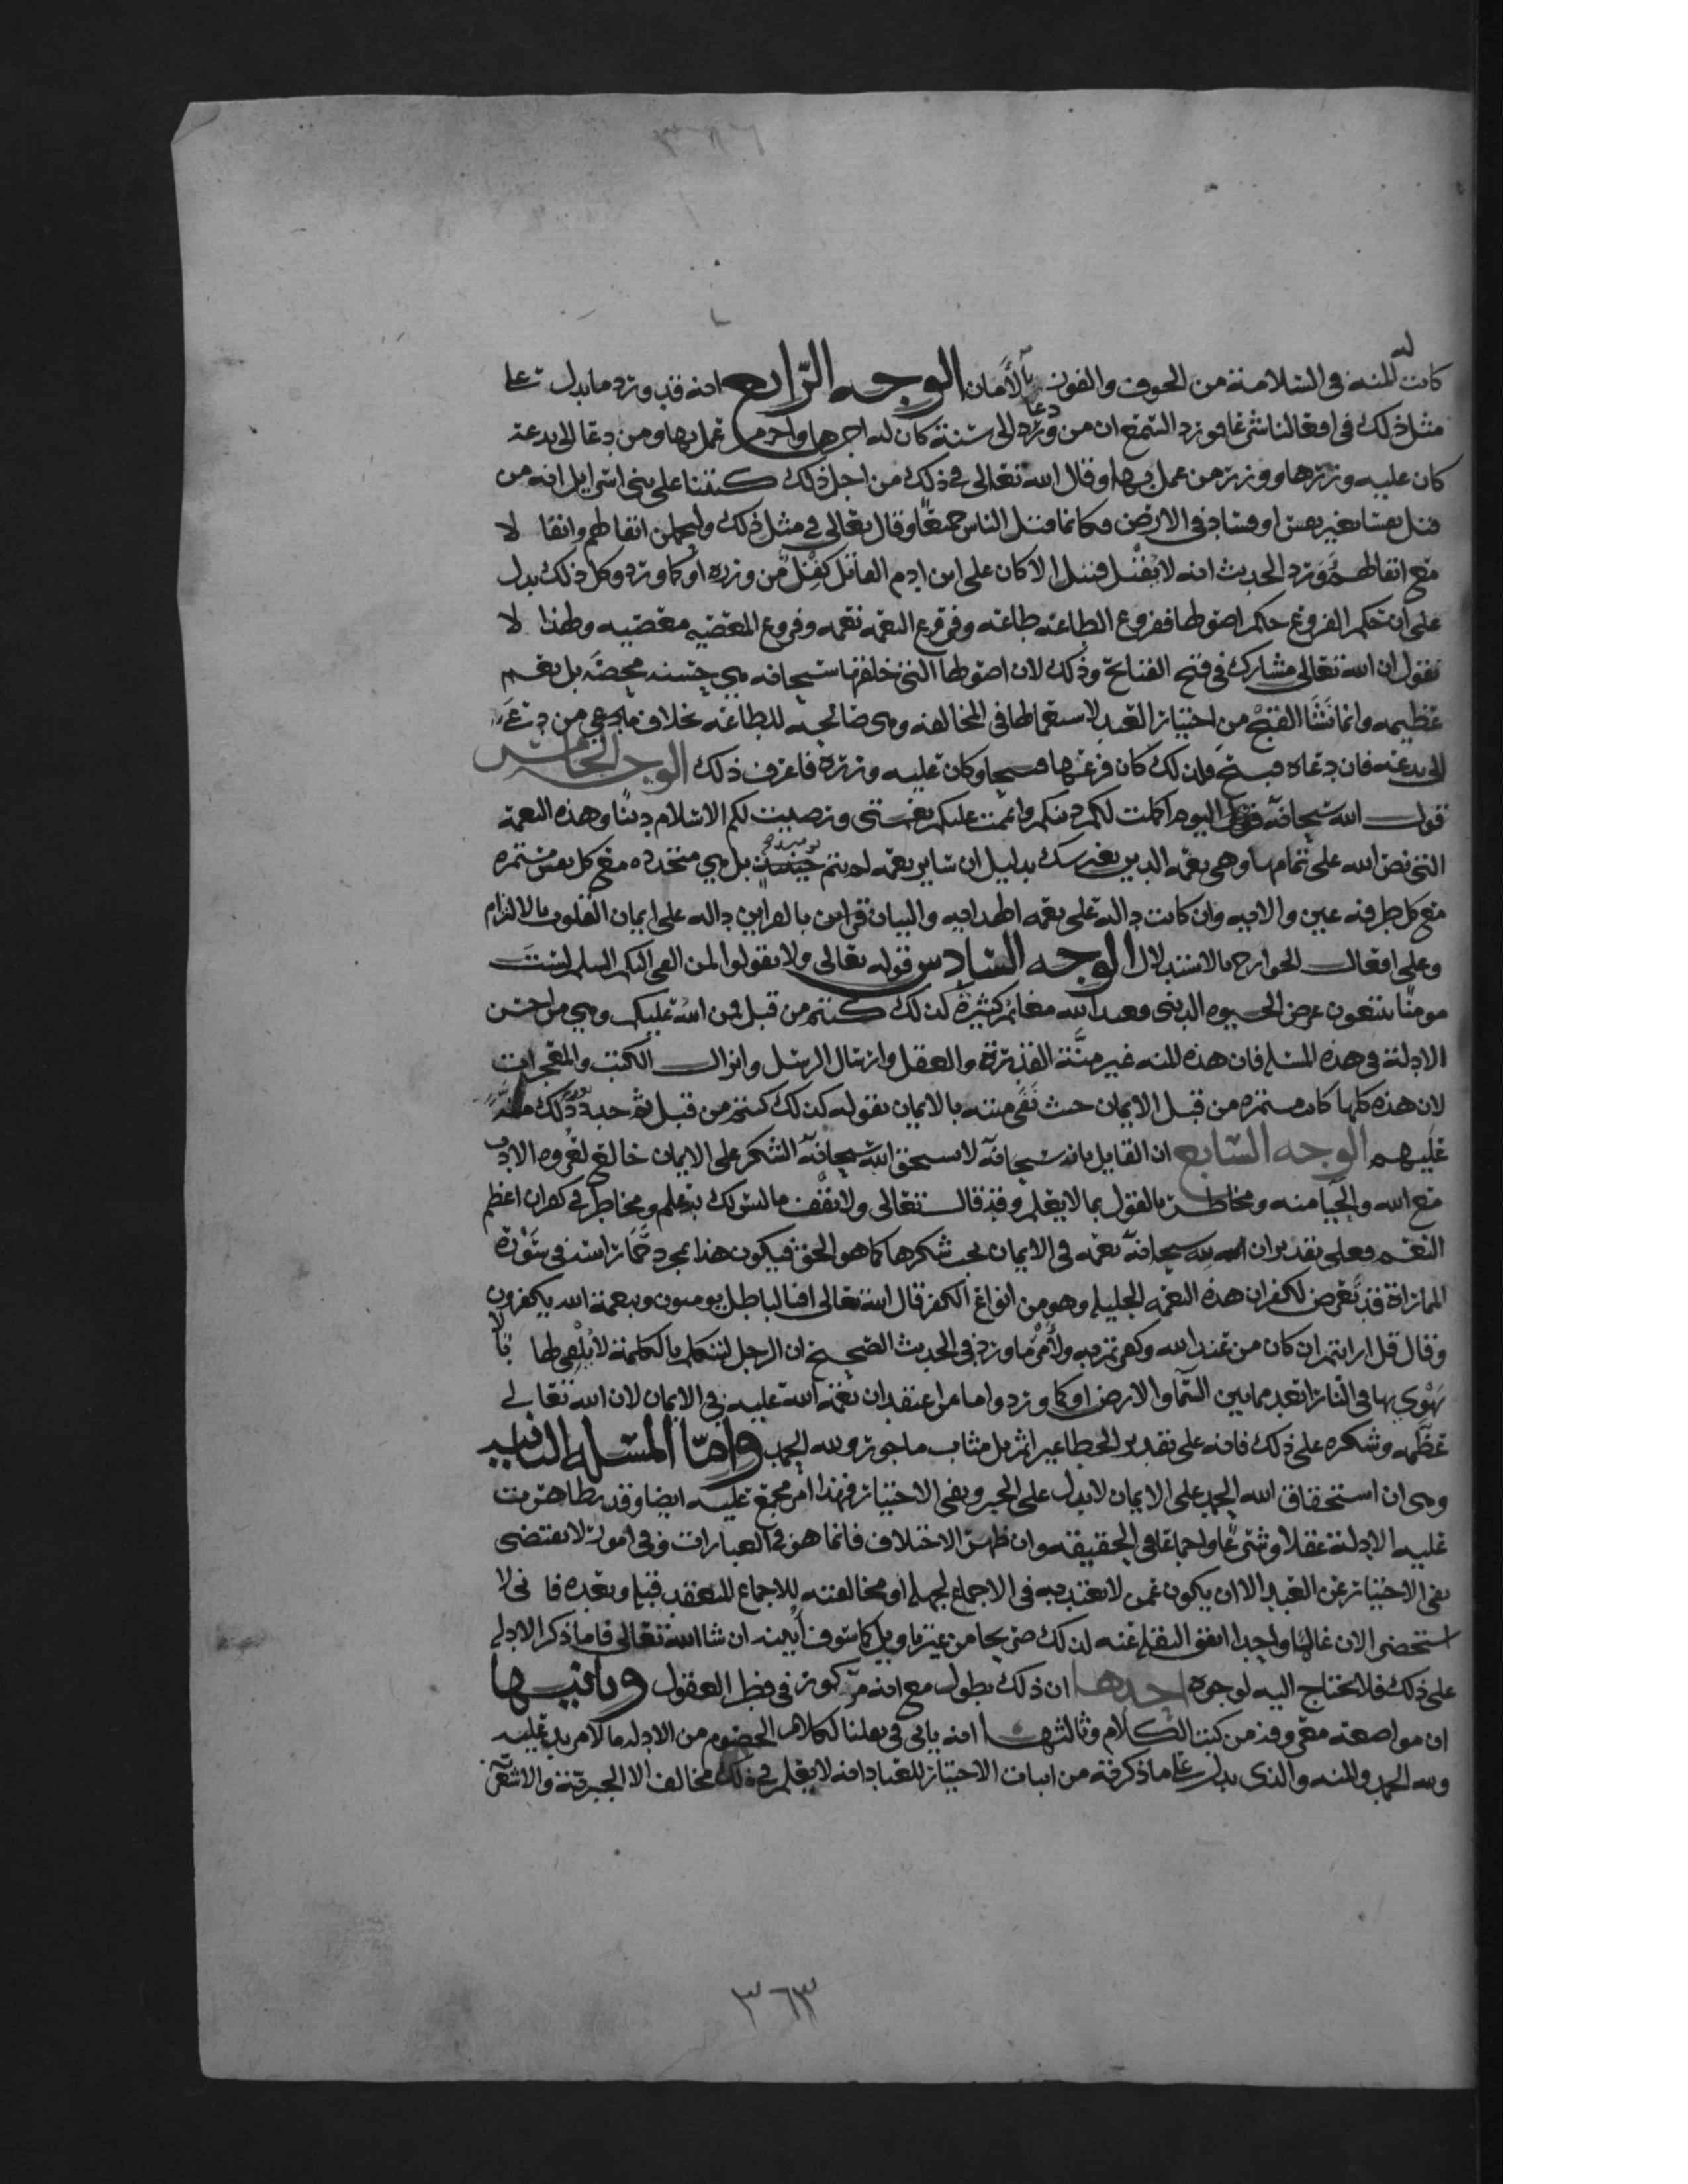 كانت له المنه في السلامة من الخوف والفوز بالأمان الوجه الرابع انه قد ورد ما يدل على
مثل ذلك في افعالنا شرعا فورد السمع ان من دعا الى سنة كان له اجرها واجر من عمل بها ومن دعا الى بدعة
كان عليه وزرها ووزر من عمل بها وقال الله تعالى في ذلك من اجل ذلك كتبنا على بني اسرايل انه من
قتل نفسا بغير نفس او فساد في الارض فكانما قتل الناس جميعًا وقال تعالى في مثل ذلك وليحملن اثقالهم واثقالا
مع اثقالهم وورد الحديث انه لا يقتل قتيل الا كان على ابن ادم القاتل كفل من وزره او كما ورد وكل ذلك يدل
على ان حكم الفروع حكم اصولها ففروع الطاعة طاعه وفروع النعمه نعمه وفروع المعصيه معصيه ولهذا لا
نقول ان الله تعالى مشارك في قبح القبائح وذلك لان اصولها التي خلقها سبحانه هي حسنه محضه بل نعم
عظيمه وانما نشا القبح من اختيار العبد لاستعمالها في المخالفه وهي صالحه للطاعه بخلاف ما يدعي من دعا
الى بدعه فان دعاه قبيح فلذلك كان فرعها قبيحا وكان عليه وزره فاعرف ذلك الوجه الخامس
قول الله سبحانه اليوم اكملت لكم دينكم واتممت عليكم نعمتي ورضيت لكم الاسلام دينًا وهذه النعمة
التي نص الله على تمامها وهي نعمه الدين بغير شك بدليل ان ساير نعمه لم تتم يوميذ بل هي متجدده مع كل نفس مستمره
مع كل طرفه عين والايه وان كانت داله على نعمه الهدايه والبيان فراين بالقراين داله على ايمان القلوب بالالتزام
وعلى افعال الجوارح بالاستدلال الوجه السادس قوله تعالى ولا تقولوا لمن القى اليكم السلم لست
مومنًا تبتغون عرض الحيوه الدنيى فعند الله مغانم كثيرة كذلك كنتم من قبل فمن الله عليكم وهي من احسن
الادلة في هذه المسله فان هذه المنه غير منة القدرة والعقل وارسال الرسل وانزال الكتب والمعجزات
لان هذه كلها كانت مستمره من قبل الايمان حيث نفى منته بالايمان بقوله كذلك كنتم من قبل ثم جدد ذلك منه
عليهم الوجه السابع ان القايل بانه سبحانه لا يستحق الله سبحانه الشكر على الايمان خالع لعروه الادب
مع الله والحيا منه ومخاطر بالقول بما لا يعلم وقد قال تعالى ولا تقف ما ليس لك به علم ومخاطر في كفران اعظم
النعم فعلى تقدير ان لله سبحانه نعمه في الايمان يجب شكرها كما هو الحق فيكون هذا بمجرد حماسته في سورة
المماراة قد تعرض لكفران هذه النعمه الجليله وهو من انواع الكفر قال الله تعالى افبالباطل يومنون وبنعمة الله يكفرون
وقال قل ارايتم ان كان من عند الله وكفرتم به ولأمر ما ورد في الحديث الصحيح ان الرجل ليتكلم بالكلمة لا يلقي لها بالا
يهوي بها في النار ابعد مما بين السما والارض او كما ورد واما من اعتقد ان نعمة الله عليه في الايمان لان الله تعالى
عظمه وشكره على ذلك فانه على تقدير الخطا غير اثم بل مثاب ماجور ولله الحمد واما المسله الثانيه
وهي ان استحقاق الله الحمد على الايمان لا يدل على الجبر ونفي الاختيار فهذا امر مجمع عليه ايضا وقد تظاهرت
عليه الادلة عقلا وشرعا واجماعا في الحقيقه وان ظهر الاختلاف فانما هو في العبارات وفي امور لا تقتضي
نفي الاختيار عن العبد الا ان يكون عمن لا يعتد به في الاجماع لجهله او مخالفته للاجماع المنعقد قبله وبعده فاني لا
استحضر الان عالما واحدا اتفق النقله عنه لذلك صريحا من غير تاويل كما سوف ابينه ان شا الله تعالى فاما ذكر الادله
على ذلك فلا يحتاج اليه لوجوه احدها ان ذلك يطول مع انه مركوز في فطر العقول وثانيها
ان مواضعه معروفه من كتب الكلام وثالثها انه ياتي في نقلنا لكلام الخصوم من الادله ما لا مزيد عليه
ولله الحمد والمنه والذي يدل على ما ذكرته من اثبات الاختيار للعباد انه لا يعلم في ذلك مخالف الا الجبرية والاشعرية
٣٦٣